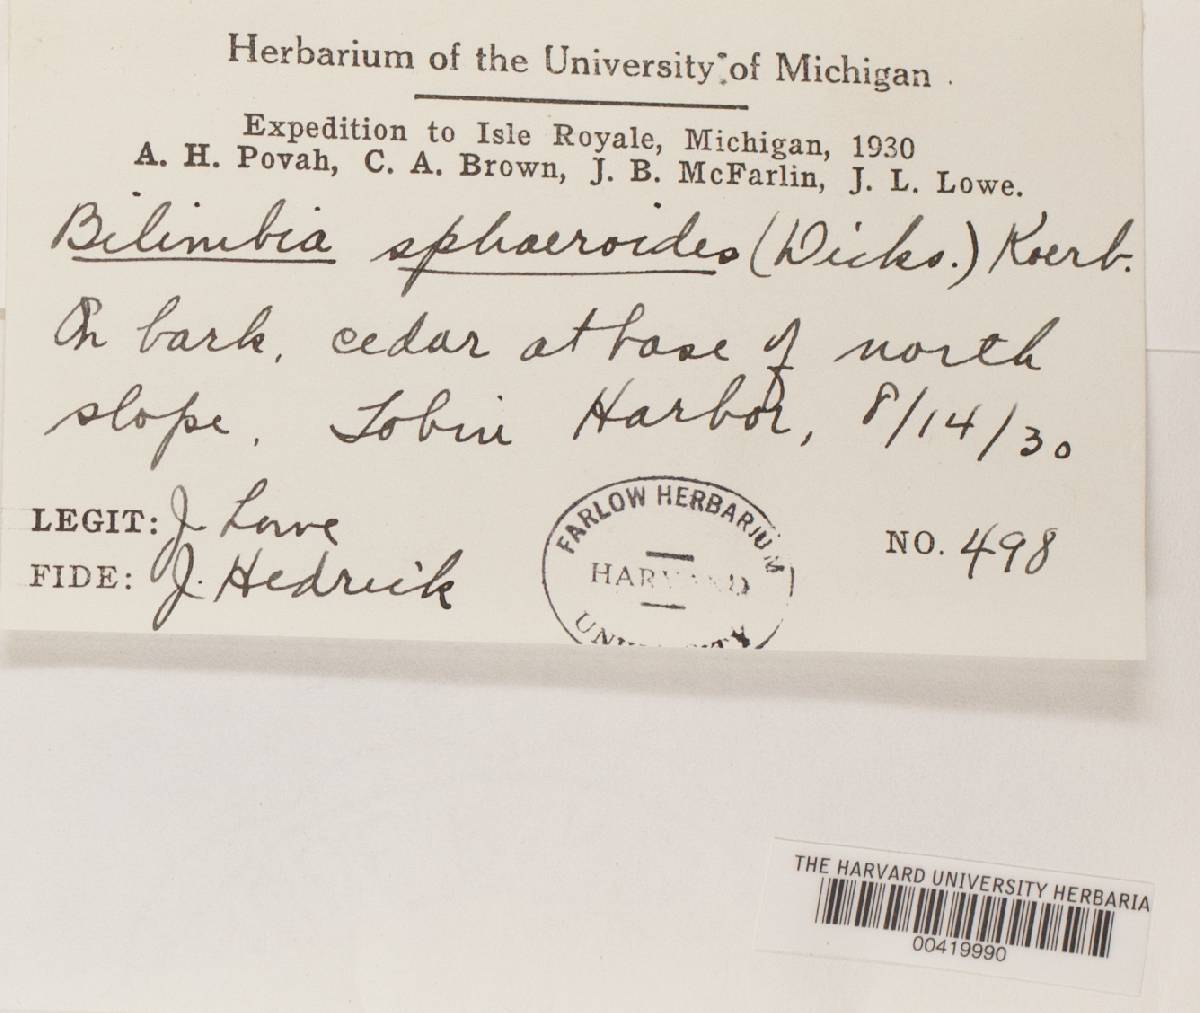 Herbarium of the University of Michigan
Expedition to Isle Royale, Michigan, 1930
A. H. Povah, C. A. Brown, J. B. McFarlin, J. L. Lowe.
Bilimbia sphaeroides (Dicks.) Koerb.
On bark, cedar at base of north
slope, Tobin Harbor, 8/14/30
LEGIT: J Lowe
FIDE: J. Hedrick
NO. 498
FARLOW HERBARIUM
HARVARD
UNIVERSITY
THE HARVARD UNIVERSITY HERBARIA
00419990